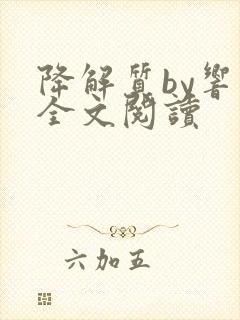 降解質by響
全文閱讀
六加五